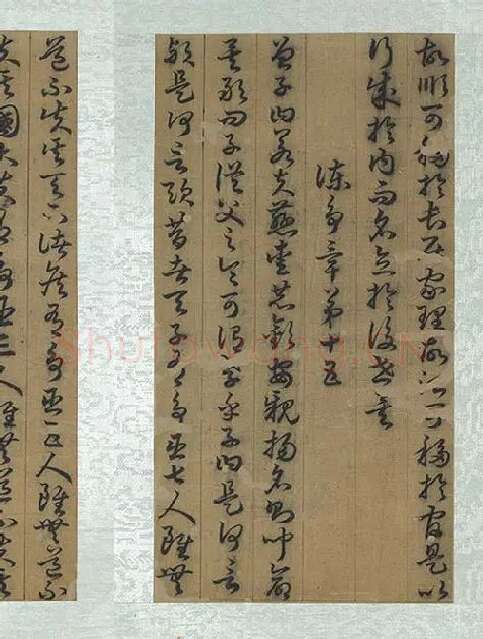 故順可移於長居家理故治可移於官是以
行成於內而名立於後世矣
諫爭章第十五
曾子曰若夫慈愛恭敬安親揚名則聞命
矣敢問子從父之令可謂孝乎子曰是何言
歟是何言歟昔者天子有爭臣七人雖無
道不失其天下諸侯有爭臣五人雖無道不
失其國大夫有爭臣三人雖無道不失其